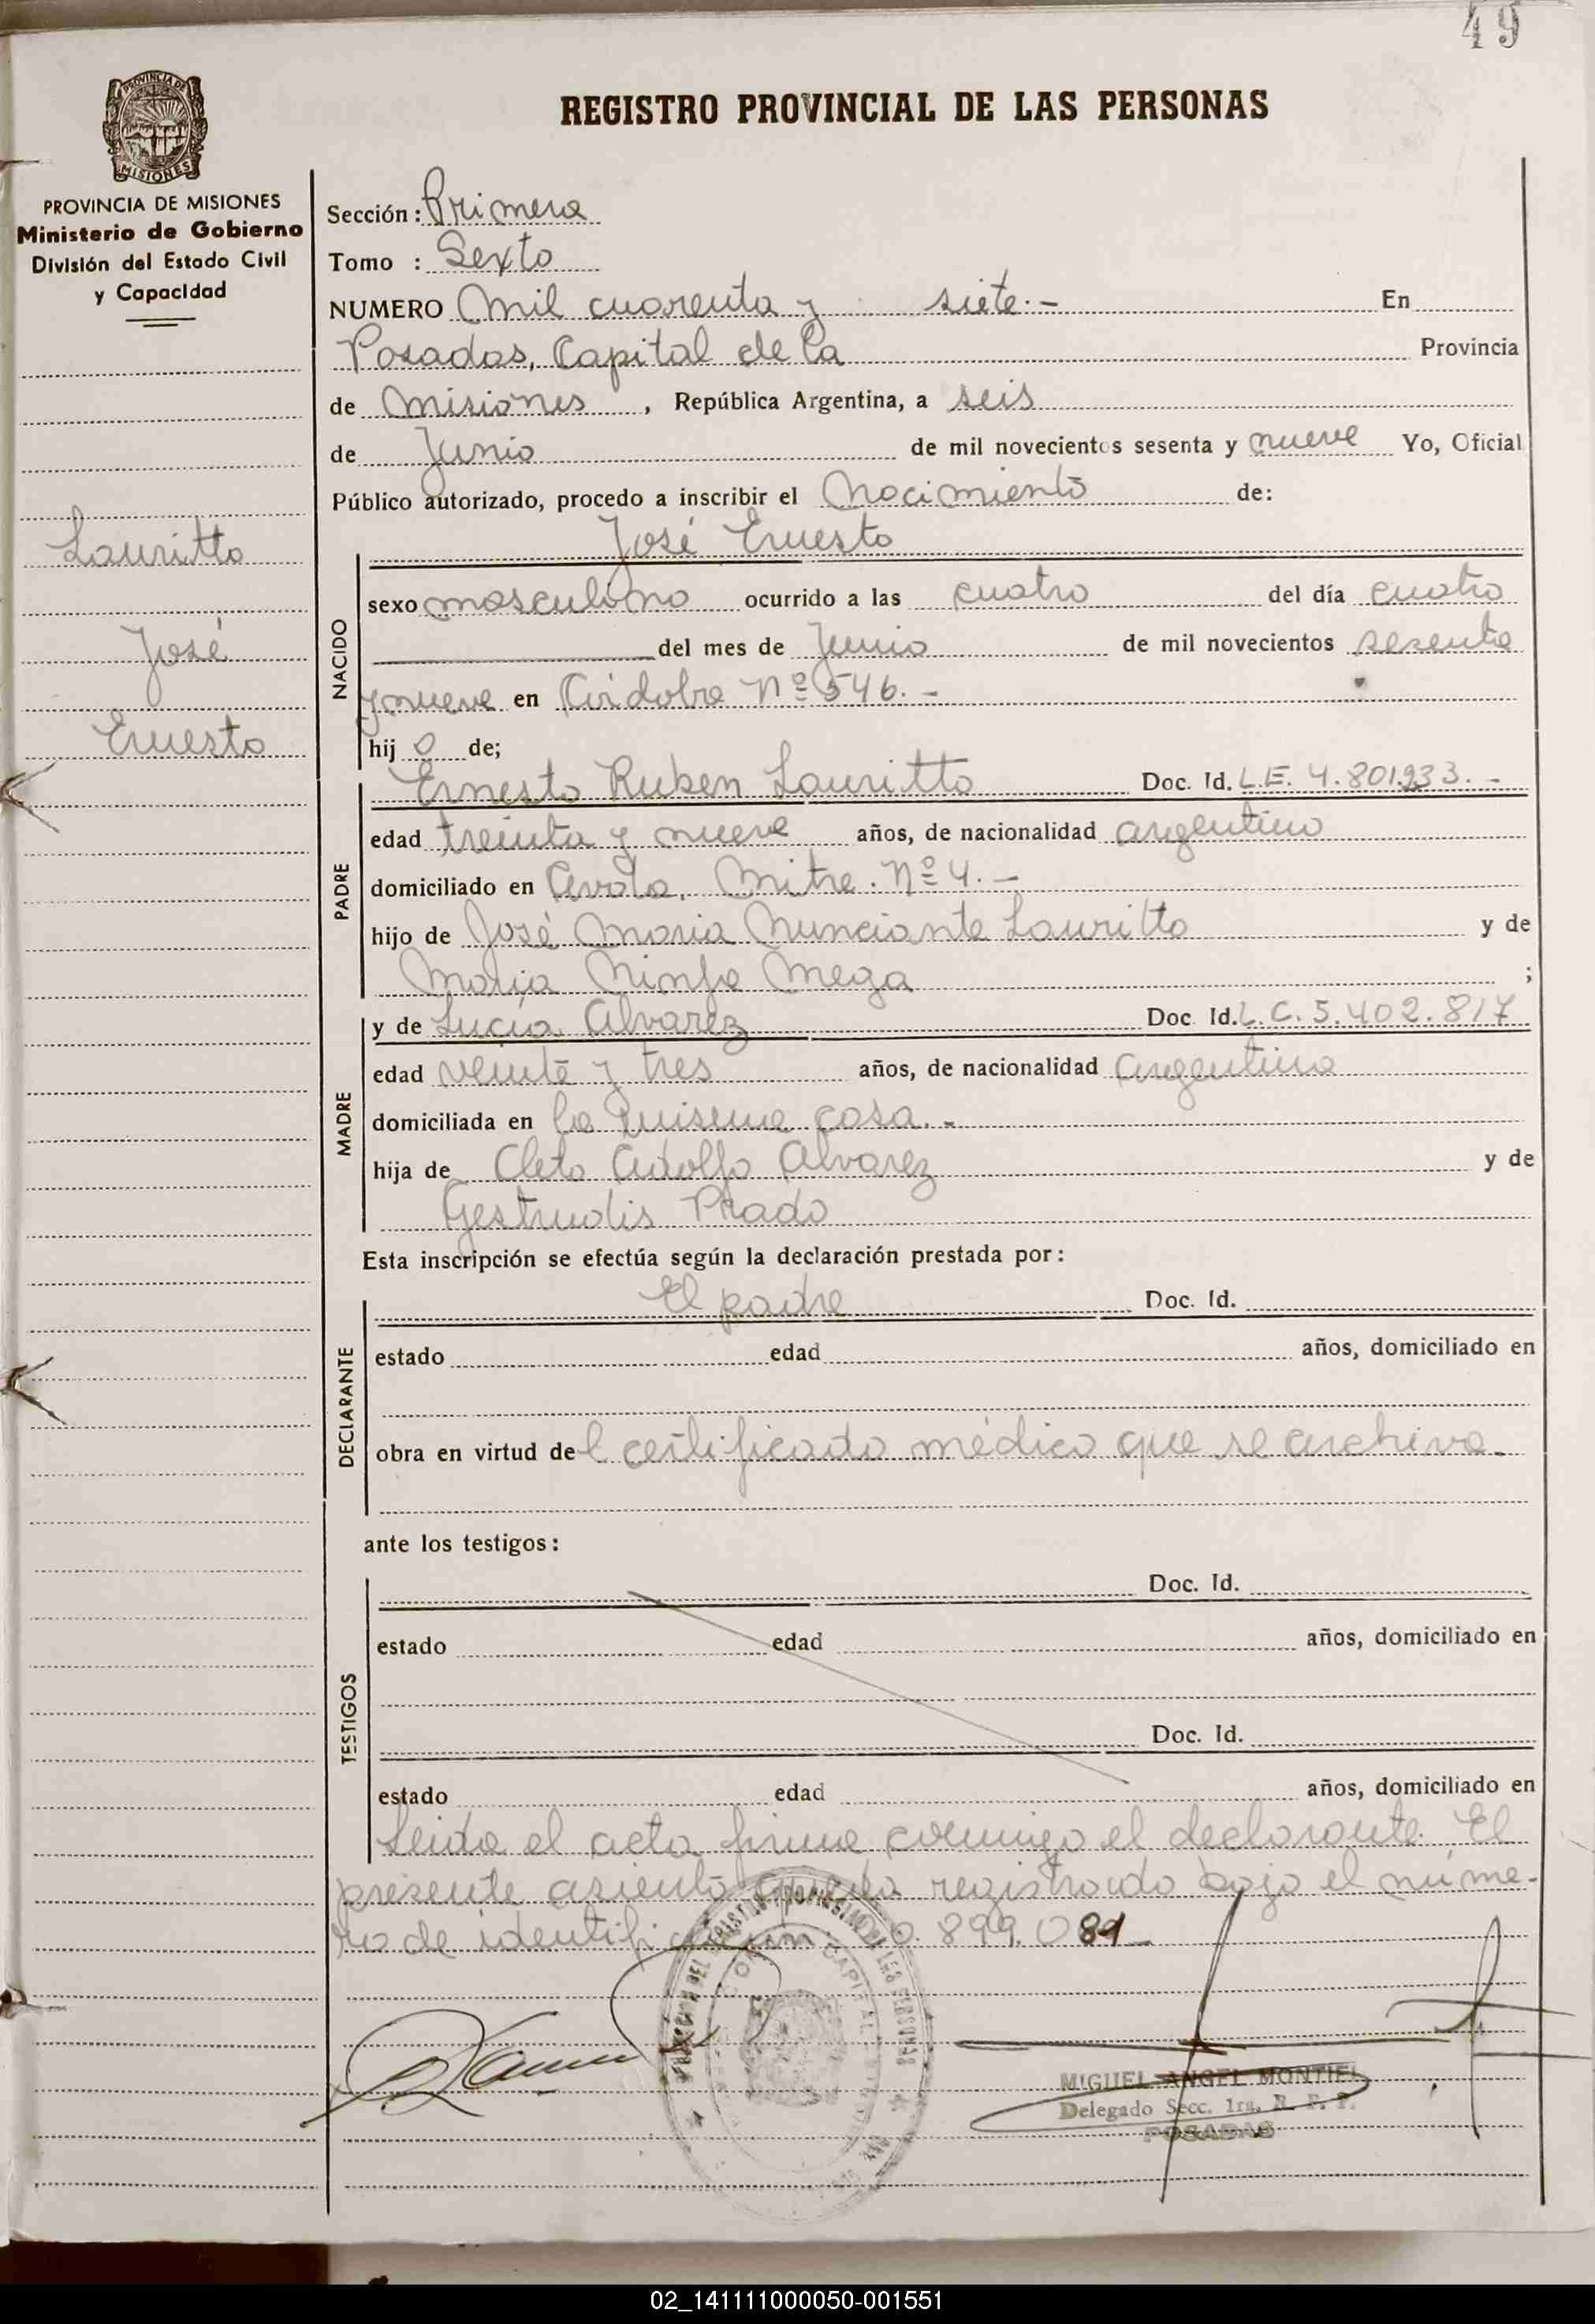 49
REGISTRO PROVINCIAL DE LAS PERSONAS
PROVINCIA DE MISIONES
MISIONES
PROVINCIA DE MISIONES
Ministerio de Gobierno
División del Estado Civil
y Capacidad
Lauritto
José
Ernesto
Sección: Primera
Tomo : Sexto
NUMERO Mil cuarenta y siete.- En
Posadas, Capital de la Provincia
de Misiones, República Argentina, a seis
de Junio de mil novecientos sesenta y nueve Yo, Oficial
Público autorizado, procedo a inscribir el Nacimiento de:
José Ernesto
NACIDO
sexo masculino ocurrido a las cuatro del día cuatro
del mes de Junio de mil novecientos sesenta
y nueve en Córdoba Nº 546.-
hijo de;
PADRE
Ernesto Ruben Lauritto Doc. Id. L.E. 4.801.933.-
edad treinta y nueve años, de nacionalidad argentino
domiciliado en Avda. Mitre. Nº 4.-
hijo de José Maria Nunciante Lauritto y de
Maria Ninfa Mega ;
MADRE
y de Lucía Alvarez Doc. Id. L.C. 5.402.817
edad veinte y tres años, de nacionalidad Argentina
domiciliada en la misma casa.-
hija de Cleto Adolfo Alvarez y de
Gestrudis Prado
Esta inscripción se efectúa según la declaración prestada por:
DECLARANTE
El padre Doc. Id.
estado edad años, domiciliado en
obra en virtud del certificado médico que se archiva.
ante los testigos:
TESTIGOS
Doc. Id.
estado edad años, domiciliado en
Doc. Id.
estado edad años, domiciliado en
Leida el acta firma conmigo el declarante. El
presente asiento queda registrado bajo el núme-
ro de identificación 20.899.081
MIGUEL ANGEL MONTIEL
Delegado Secc. 1ra. R. P. P.
POSADAS
02_141111000050-001551